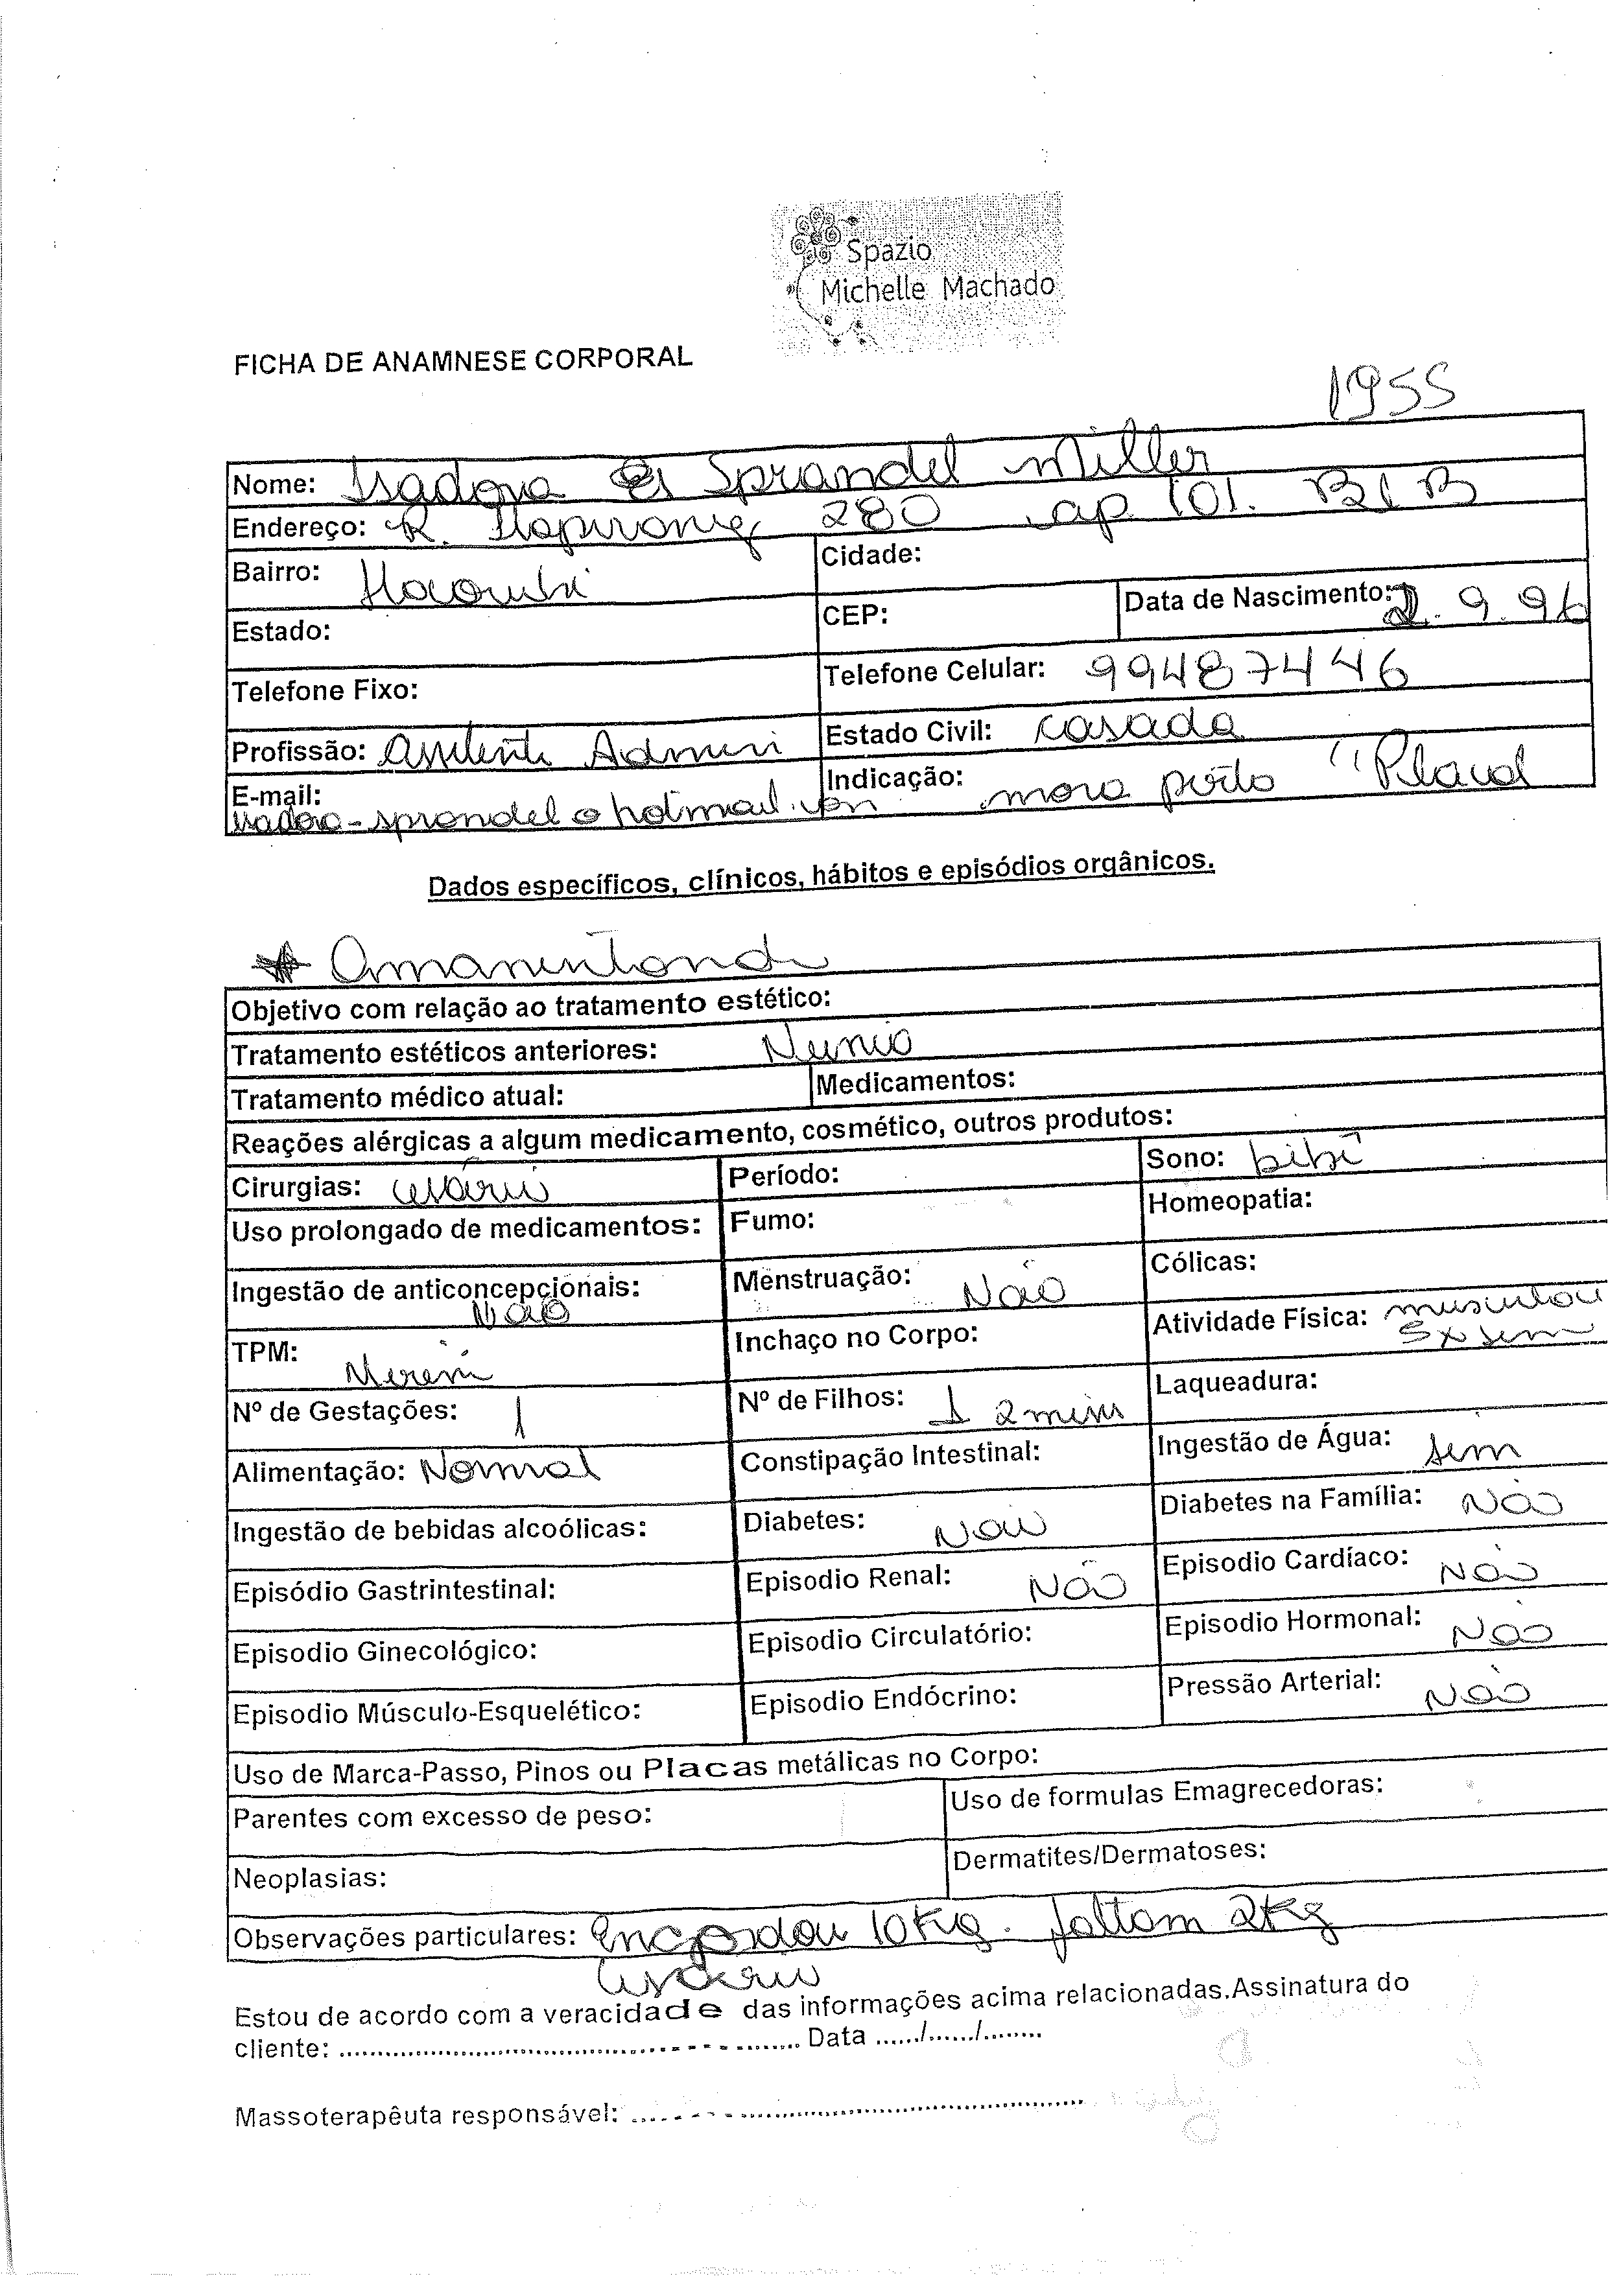 Spazio
Michelle Machado
FICHA DE ANAMNESE CORPORAL
1955
Nome: Isadora Sprandel Miller
Endereço: R. 280 ap. 101. Bl B
Bairro: Cidade:
Estado: CEP: Data de Nascimento: 2. 9. 96
Telefone Fixo: Telefone Celular: 99487446
Profissão: Assistente Admini Estado Civil: casada
E-mail: Indicação: mora perto "Placa"
isadora-sprandel@hotmail.com
Dados específicos, clínicos, hábitos e episódios orgânicos.
* Amamentando
Objetivo com relação ao tratamento estético:
Tratamento estéticos anteriores: Nunca
Tratamento médico atual: Medicamentos:
Reações alérgicas a algum medicamento, cosmético, outros produtos:
Cirurgias: cesária Período: Sono: bebê
Uso prolongado de medicamentos: Fumo: Homeopatia:
Ingestão de anticoncepcionais: Não Menstruação: Não Cólicas:
TPM: Inchaço no Corpo: Atividade Física: musculaç
5x sem
Nº de Gestações: 1 Nº de Filhos: 1 Laqueadura:
Alimentação: Normal Constipação Intestinal: Ingestão de Água: sem
Ingestão de bebidas alcoólicas: Diabetes: Não Diabetes na Família: Não
Episódio Gastrintestinal: Episodio Renal: Não Episodio Cardíaco: Não
Episodio Ginecológico: Episodio Circulatório: Episodio Hormonal: Não
Episodio Músculo-Esquelético: Episodio Endócrino: Pressão Arterial: Não
Uso de Marca-Passo, Pinos ou Placas metálicas no Corpo:
Parentes com excesso de peso: Uso de formulas Emagrecedoras:
Neoplasias: Dermatites/Dermatoses:
Observações particulares: Engordou 10Kg. faltam 2Kg
cesária
Estou de acordo com a veracidade das informações acima relacionadas.Assinatura do
cliente: ........................................ Data ....../....../........
Massoterapêuta responsável: ........................................